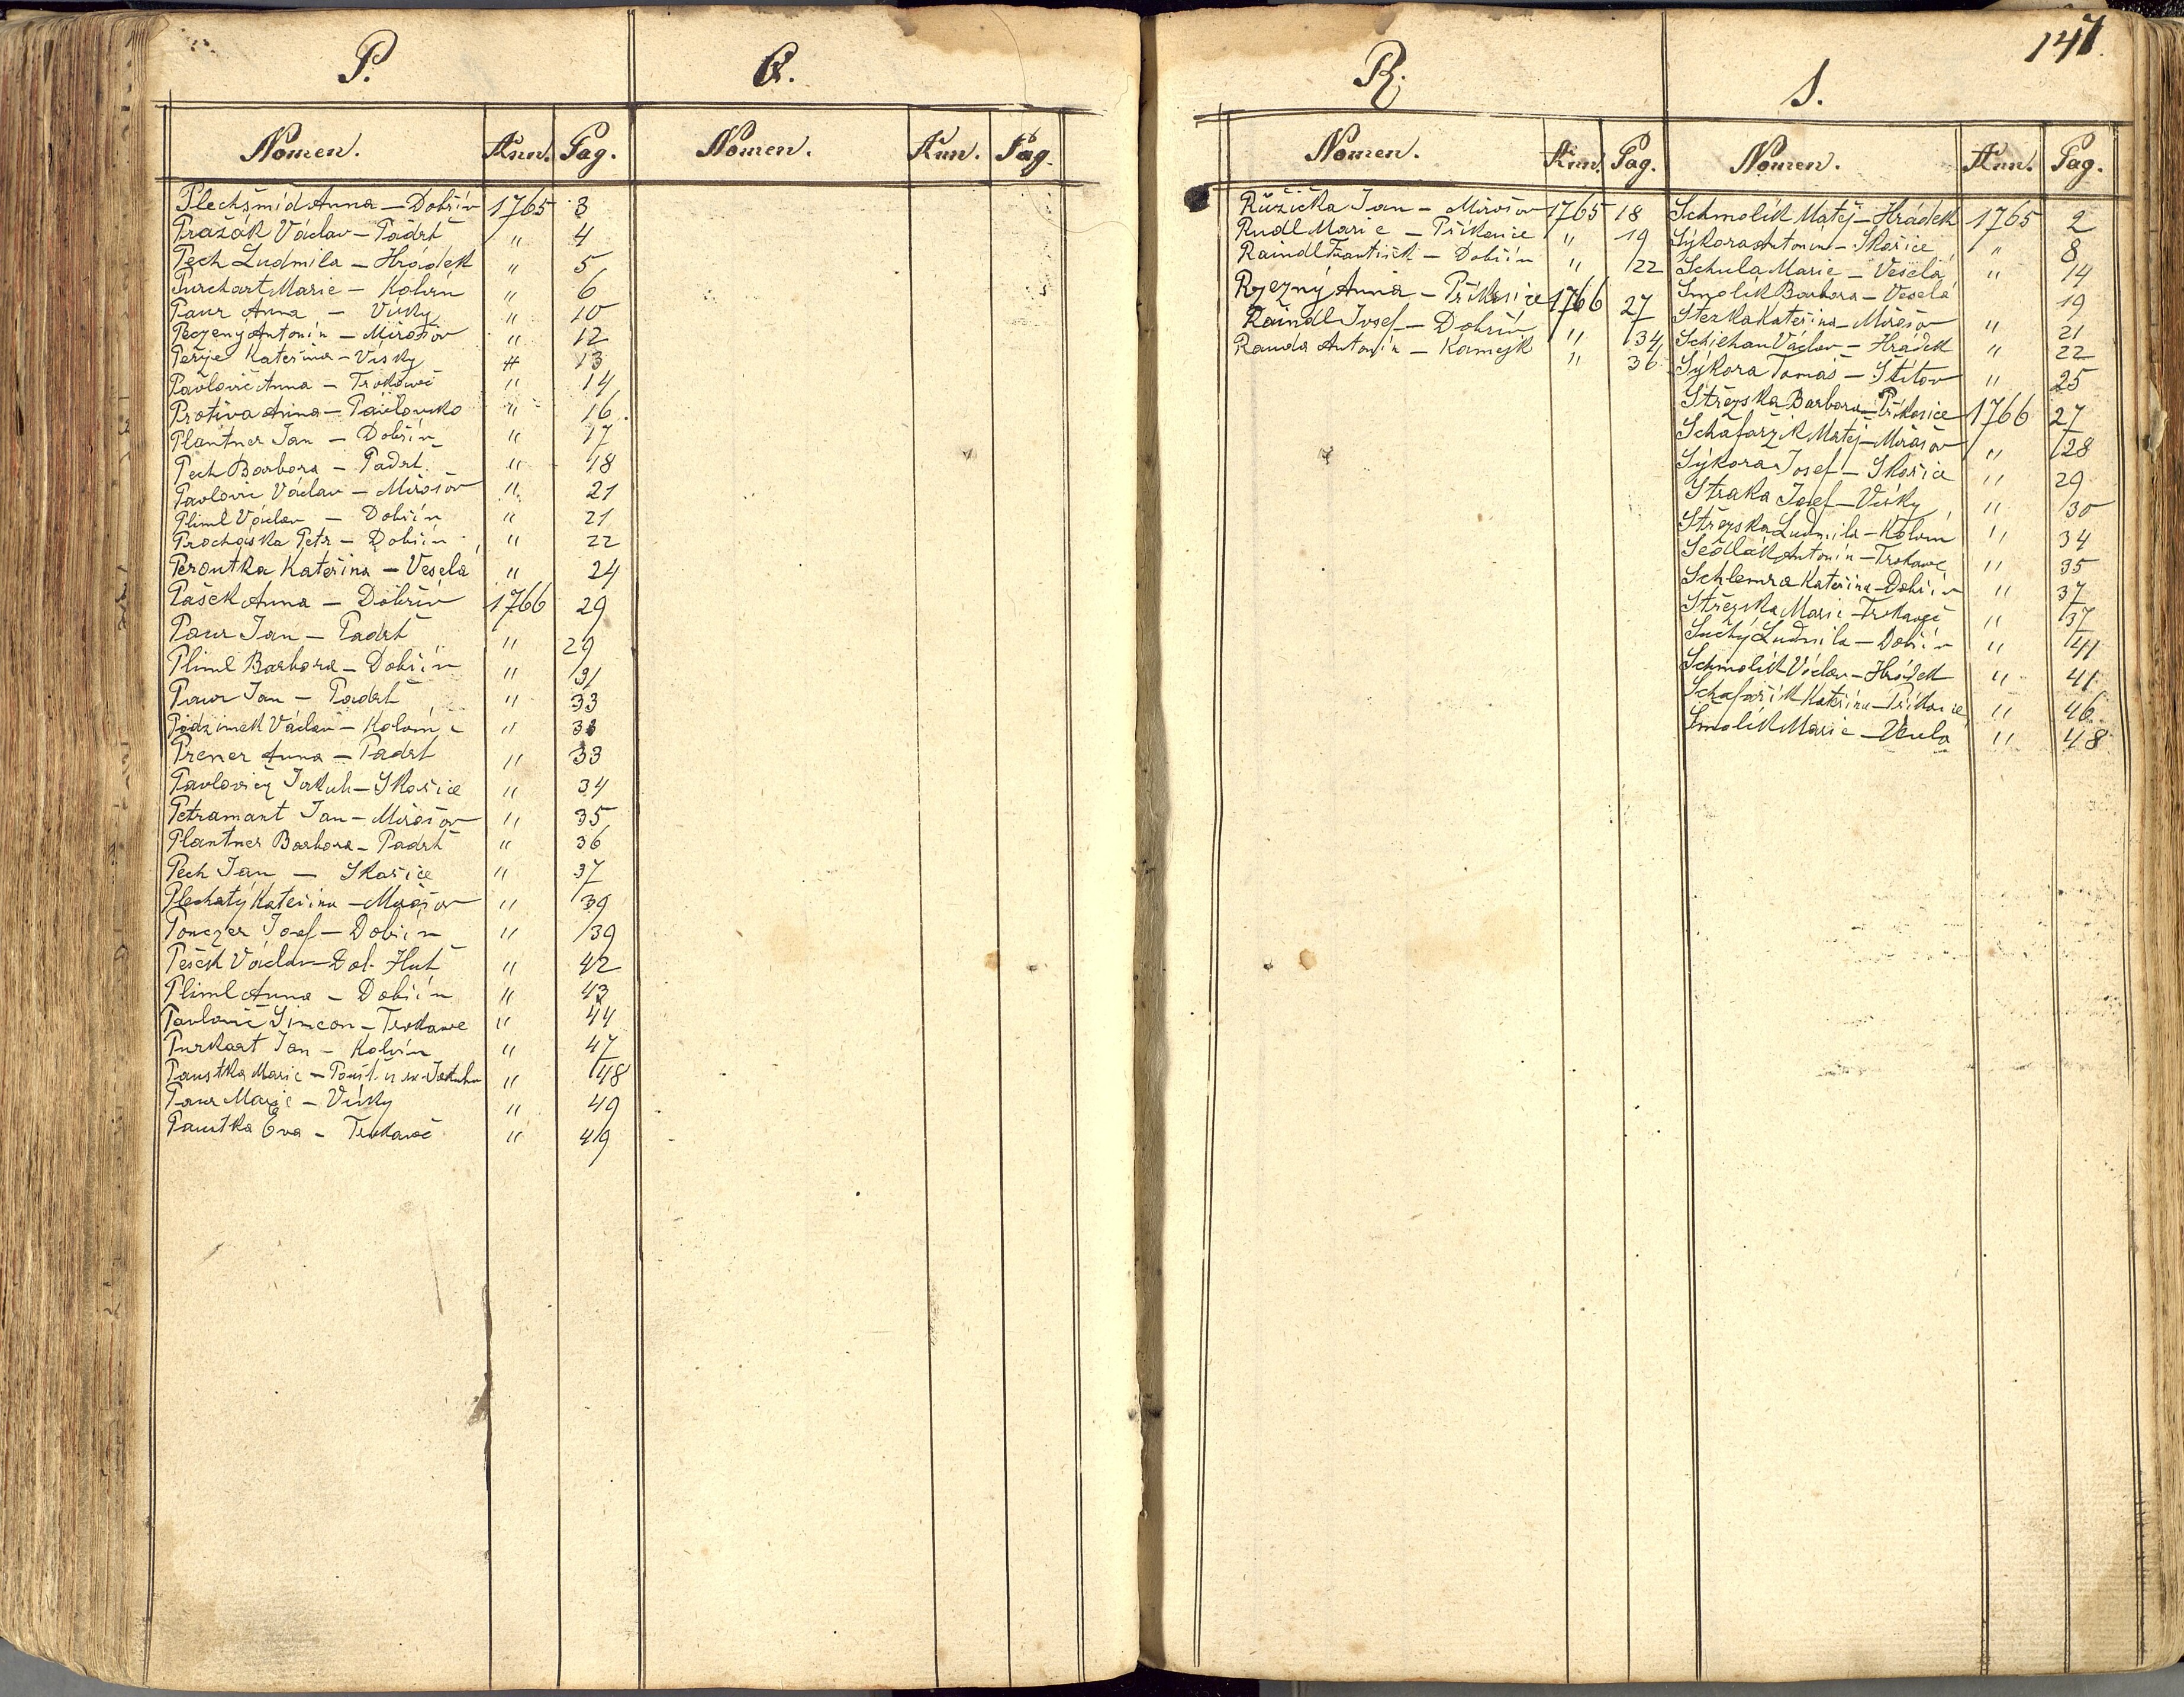 P.
Nomen. Ann. Pag.
Plechšmíd Anna – Dobřív 1765 3
Pražák Václav – Padrť " 4
Pech Ludmila – Hrádek " 5
Purchart Marie – Kolvín " 6
Paur Anna – Vísky " 10
Peczený Antonín – Mirošov " 12
Kateřina – Vísky " 13
Pavlovič Anna – Trokaveč " 14
Protiva Anna – " 16
Plantner Jan – Dobřív " 17
Pech Barbora – Padrť " 18
Pavlovic Václav – Mirošov " 21
Pliml Václav – Dobřív " 21
Procháska Petr – Dobřív " 22
Peroutka Kateřina – Veselá " 24
Pašek Anna – Dobřív 1766 29
Paur Jan – Padrť " 29
Pliml Barbora – Dobřív " 31
Paur Jan – Padrť " 33
Podzimek Václav – Kolvín " 33
Prener Anna – Padrť " 33
Pavlovicz Jakub – Skořice " 34
Petramant Jan – Mirošov " 35
Plantner Barbora – Padrť " 36
Pech Jan – Skořice " 37
Plechatý Kateřina – Mirošov " 39
Ponczer Josef – Dobřív " 39
Pešek Václav – Dol. Huť " 42
Pliml Anna – Dobřív " 43
Pavlovič Simeon – Trokavec " 44
Purkart Jan – Kolvín " 47
Paustka Marie – Poušť. u sv. Jakuba " 48
Paur Marie – Vísky " 49
Paustka Eva – Trokaveč " 49
Q.
Nomen. Ann. Pag.
147.
R.
Nomen. Ann. Pag.
Růžička Jan – Mirošov 1765 18
Rudl Marie – Příkosice " 19
Raindl František – Dobřív " 22
Rzezný Anna – Příkosice 1766 27
Raindl Josef – Dobřív " 34
Rauda Antonín – Kamejk " 36
S.
Nomen. Ann. Pag.
Schmolík Matěj – Hrádek 1765 2
Sýkora Antonín – Skořice " 8
Schula Marie – Veselá " 14
Smolík Barbora – Veselá 19
Sterka Kateřina – Mirošov " 21
Schiehan Václav – Hrádek " 22
Sýkora Tomáš – Štítov " 25
Střezska Barbora – Příkosice 1766 27
Schafarzik Matěj – Mirošov " 28
Sýkora Josef – Skořice " 29
Straka Josef – Vísky " 30
Střezska Ludmila – Kolvín " 34
Sedlák Antonín – Trokavec " 35
Schlemra Kateřina – Dobřív " 37
Střezska Marie – Trokaveč " 37
Suchý Ludmila – Dobřív " 41
Schmolík Václav – Hrádek " 41
Schafařík Kateřina – Příkosice " 46
Smolík Marie – Veselá " 48